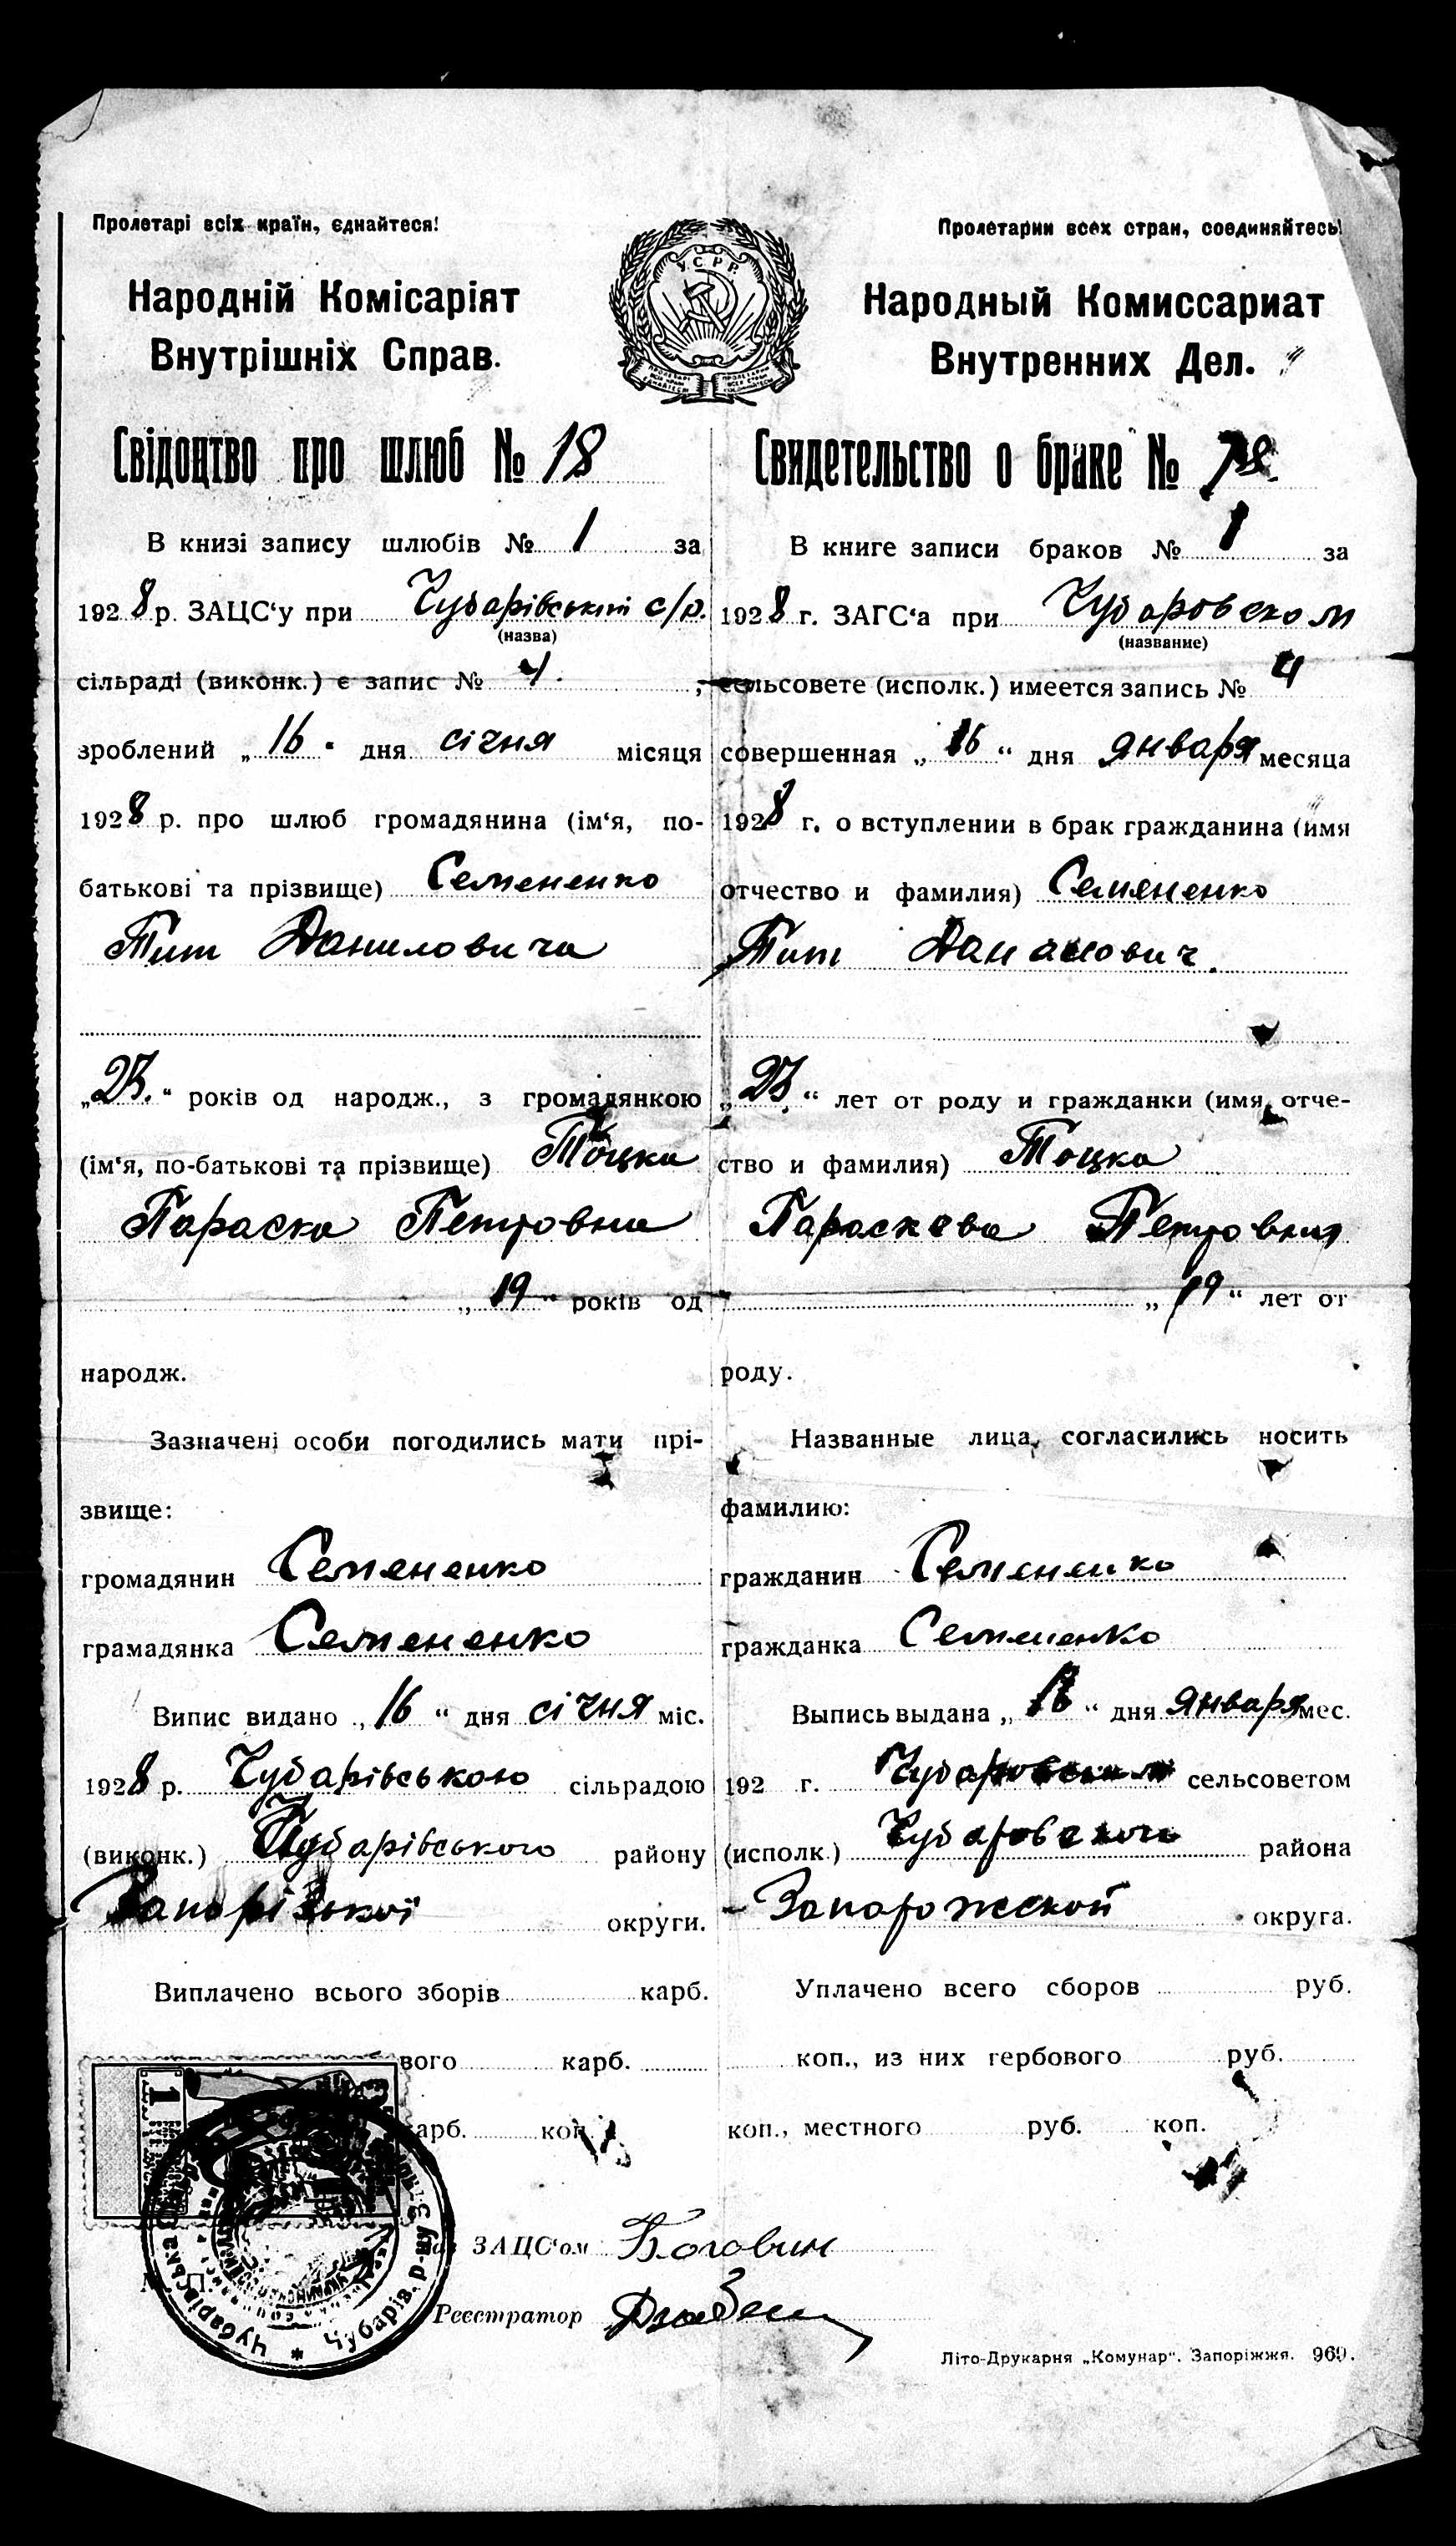 Пролетарі всіх країн, єднайтеся!
Народній Комісаріят
Внутрішніх Справ.
У.С.Р.Р.
Пролетарии всех стран, соединяйтесь!
Народный Комиссариат
Внутренних Дел.
Свідоцтво про шлюб № 18
В книзі запису шлюбів № 1 за
1928 р. ЗАЦС‘у при Чубарівській с/р.
(назва)
сільраді (виконк.) є запис № 4.,
зроблений „16“ дня січня місяця
1928 р. про шлюб громадянина (ім‘я, по-
батькові та прізвище) Семененко
Тит Даниловича
„23.“ років од народж., з громадянкою
(ім‘я, по-батькові та прізвище) Тоцка
Параска Петровна
„19“ років од
народж.
Зазначені особи погодились мати прі-
звище:
громадянин Семененко
грамадянка Семененко
Випис видано „16“ дня січня міс.
1928 р. Чубарівською сільрадою
(виконк.) Чубарівського району
Запорізької округи.
Виплачено всього зборів карб.
вого карб.
карб. коп.
ЗАЦС‘ом
Реєстратор
Свидетельство о браке № 18
В книге записи браков № 1 за
1928 г. ЗАГС‘а при Чубаровском
(название)
сельсовете (исполк.) имеется запись № 4
совершенная „16“ дня января месяца
1928 г. о вступлении в брак гражданина (имя
отчество и фамилия) Семененко
Тит Данилович.
„23“ лет от роду и гражданки (имя, отче-
ство и фамилия) Тоцка
Параскева Петровна
„19“ лет от
роду.
Названные лица, согласились носить
фамилию:
гражданин Семененко
гражданка Семененко
Выпись выдана „16“ дня января мес.
192 г. Чубаровским сельсоветом
(исполк.) Чубаровского района
Запорожской округа.
Уплачено всего сборов руб.
коп., из них гербового руб.
коп., местного руб. коп.
Літо-Друкарня „Комунар“. Запоріжжя. 969.
1
Чубарівська
Чубарів. р-ну